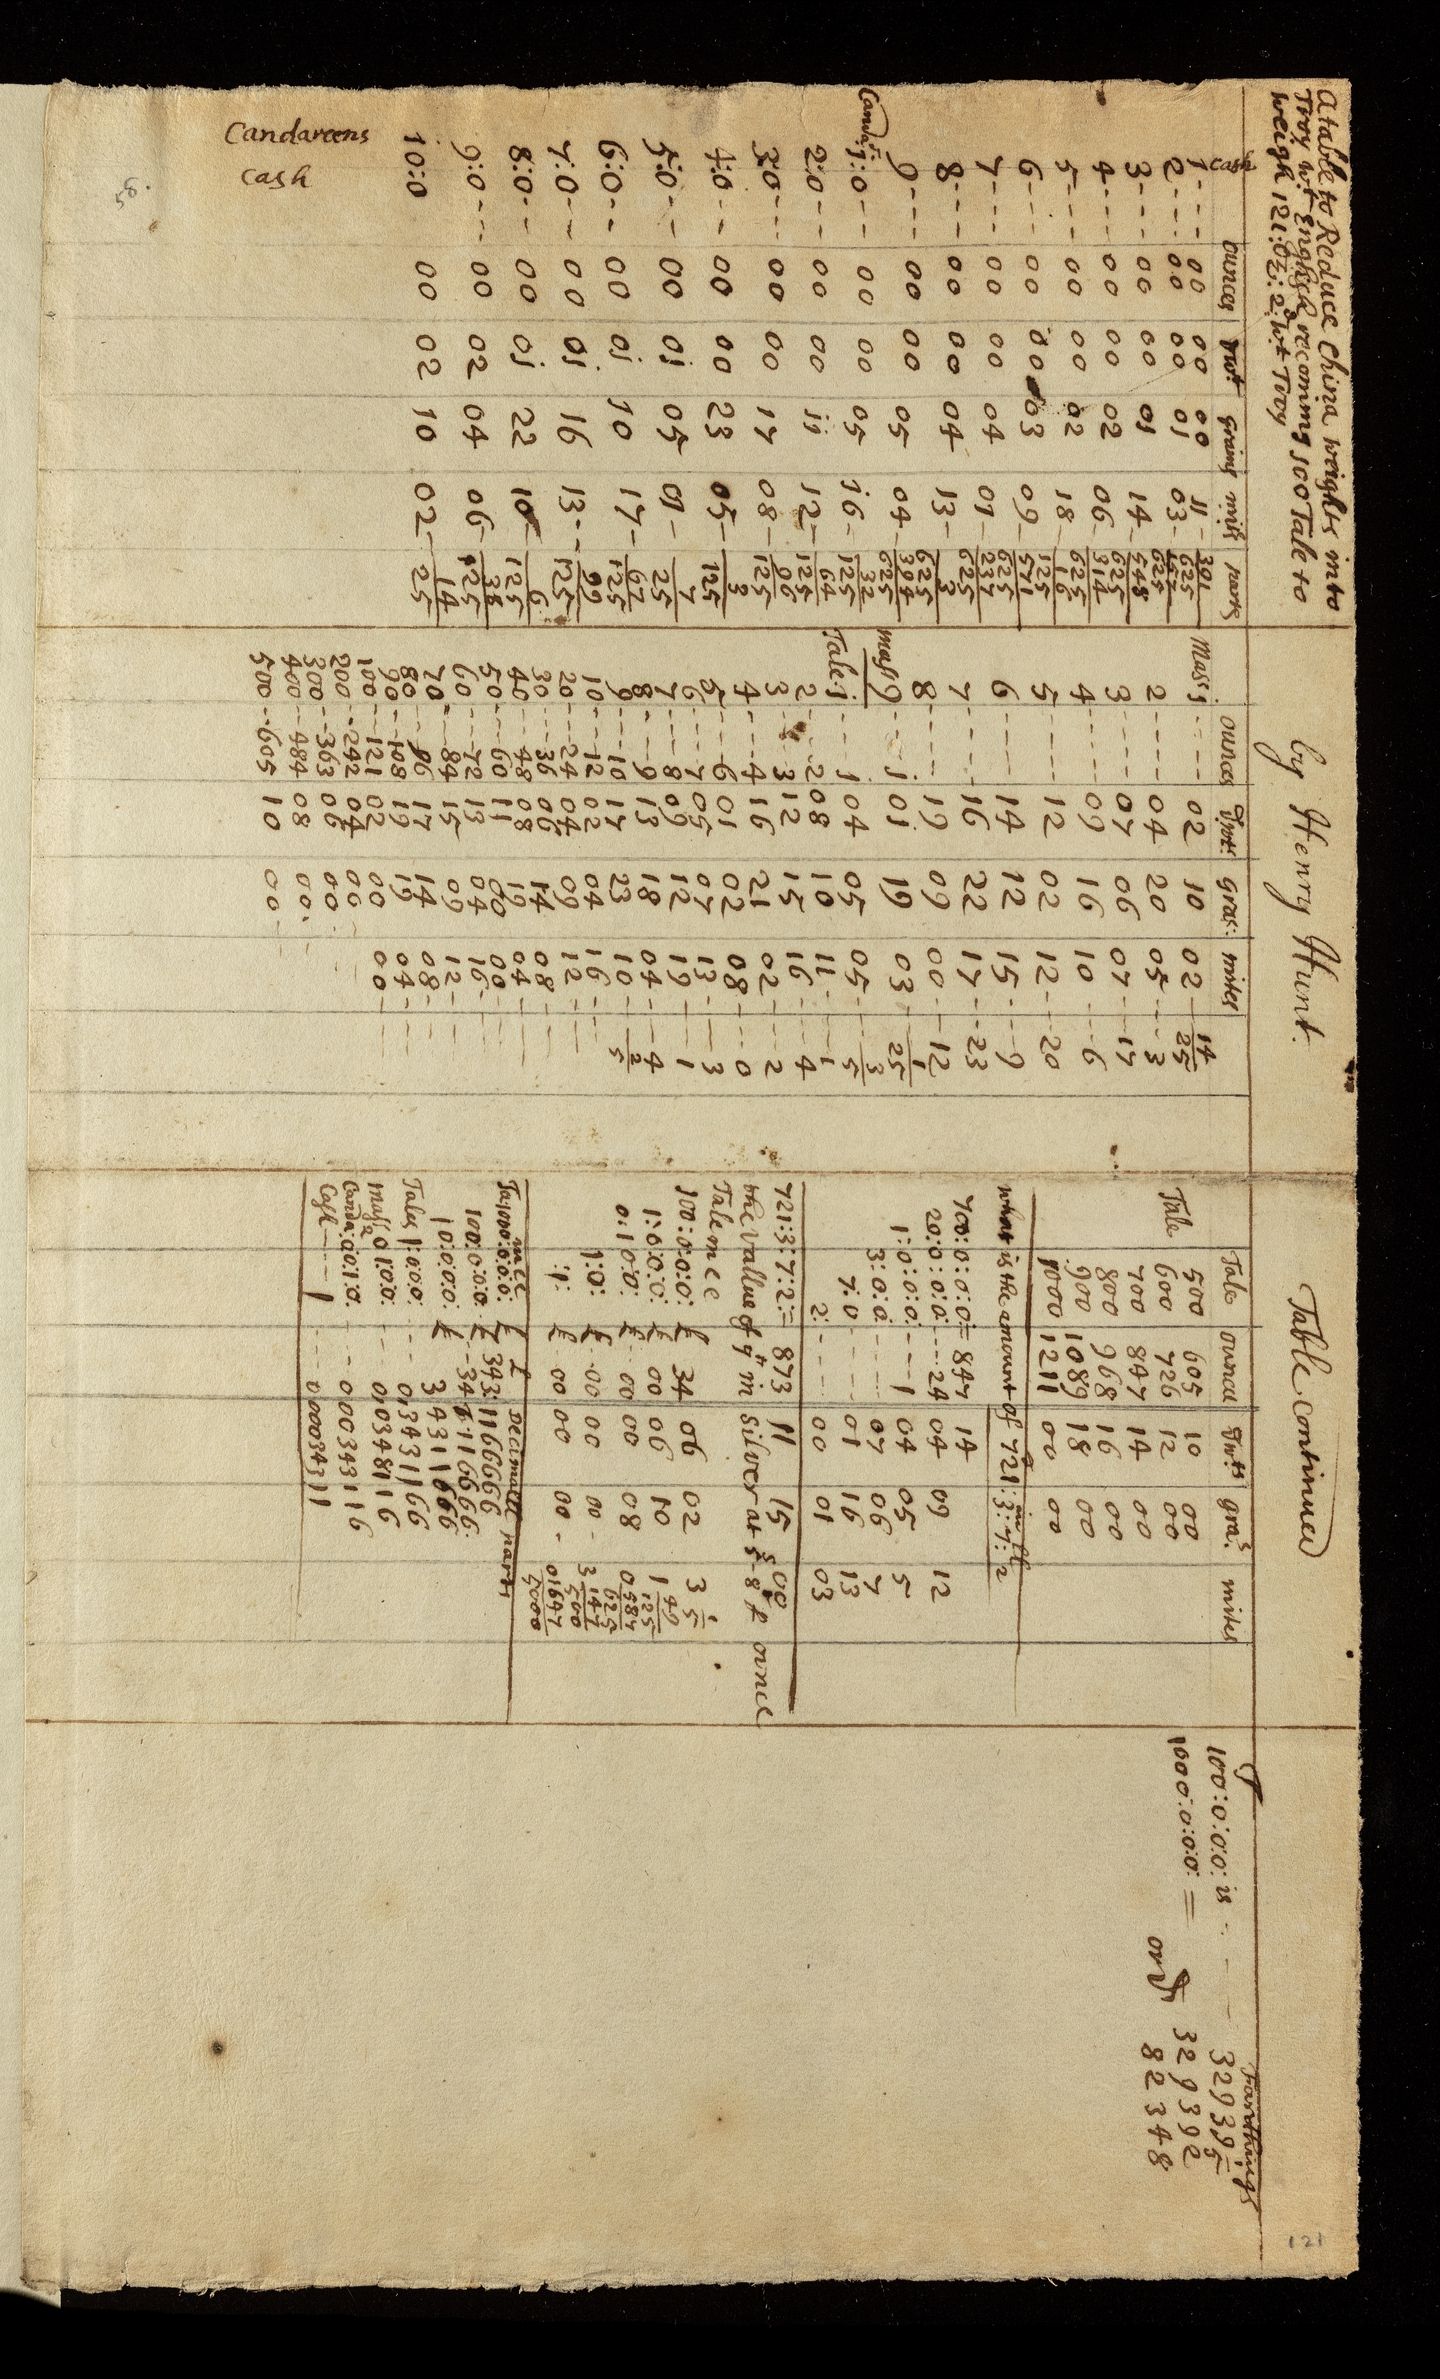 A table to Reduce China weights into
Troy wt. English reconing 100 Tale to
weigh 121:oz:2:dwt Troy
cash ounces dwt grains mits parts
1 --- 00 00 00 11 - 391/625
2 --- 00 00 01 03 - 157/625
3 --- 00 00 01 14 - 548/625
4 --- 00 00 02 06 - 314/625
5 --- 00 00 02 18 - 16/125
6 --- 00 00 03 09 - 571/625
7 --- 00 00 04 01 - 237/625
8 --- 00 00 04 13 - 3/625
9 --- 00 00 05 04 - 394/625
Canda:rs 1:0 -- 00 00 05 j6 - 32/125
2:0 -- 00 00 jj 12 - 64/125
3:0 --- 00 00 17 08 - 96/125
4:0 -- 00 00 23 05 - 3/125
5:0 -- 00 0j 05 01 - 7/25
6:0 -- 00 0j 10 17 - 67/125
7:0 -- 00 0j 16 13 - 99/125
8:0 -- 00 0j 22 10 - 6/125
9:0 --- 00 02 04 06 - 38/125
10:0 00 02 10 02 - 14/25
Candareens
cash
58.
by Henry Hunt.
ounces dwt: gras: mites
Mas: 1 --- 02 10 02 -- 14/25
2 --- 04 20 05 --- 3
3 --- 07 06 07 --- 17
4 --- 09 16 10 --- 6
5 --- 12 02 12 --- 20
6 --- 14 12 15 --- 9
7 --- 16 22 17 --- 23
8 --- 19 09 00 --- 12
mass 9 --- 1 01 19 03 --- 1/25
Tale: 1 --- 1 04 05 05 --- 3/5
2 --- 2 08 10 11 --- 1
3 --- 3 12 15 16 --- 4
4 --- 4 16 21 02 --- 2
5 --- 6 01 02 08 --- 0
6 --- 7 05 07 13 --- 3
7 --- 8 09 12 19 --- 1
8 --- 9 13 18 04 --- 4
9 --- 10 17 23 10 --- 2/5
10 --- 12 02 04 16 ---
20 --- 24 04 09 12 ---
30 --- 36 06 14 08 ---
40 --- 48 08 19 04 ---
50 --- 60 11 00 00 ---
60 --- 72 13 04 16 ---
70 --- 84 15 09 12 ---
80 --- 96 17 14 08 ---
90 --- 108 19 19 04 ---
100 --- 121 02 00 00
200 --- 242 04 00
300 --- 363 06 00
400 --- 484 08 00
500 --- 605 10 00
Table Continued
Tale ounces dwts gras: mites
Tale 500 605 10 00
600 726 12 00
700 847 14 00
800 968 16 00
900 1089 18 00
1000 1211 00 00
what is the amount of 721:3:7:2
700:0:0:0 = 847 14
20:0:0:0 --- 24 04 09 12
1:0:0:0: --- 1 04 05 5
3:0:0 --- 07 06 7
7:0 --- 01 16 13
2: --- 00 01 03
721:3:7:2: = 873 11 15 00
the vallue of ym in Silver at 5s 8d £ ounce
Tale m c c
100:0:0:0: £ 34 06 02 3 1/5
1:0:0:0: £ 00 06 10 1 49/125
0:1:0:0: £ 00 00 08 0 587/625
1:0: £ 00 00 00 3 147/500
:1: £ 00 00 00 - 01647/5000
m c c £ Decimall parts
Ta: 1000:0:0:0: £ 343:1166666
100:0:0:0 £ 34:3116666
10:0:0:0: £ 3 4311666
Tales 1:0:0:0: --- 0,3431166
Mass 0 1:0:0: --- 0,0343116
Canda: 0:0:1:0: --- 0 00343116
Cash --- 1 --- 0 00034311
farthings
100:0:0:0: is --- 32939 1/5
1000:0:0:0: = 329392
82348
121